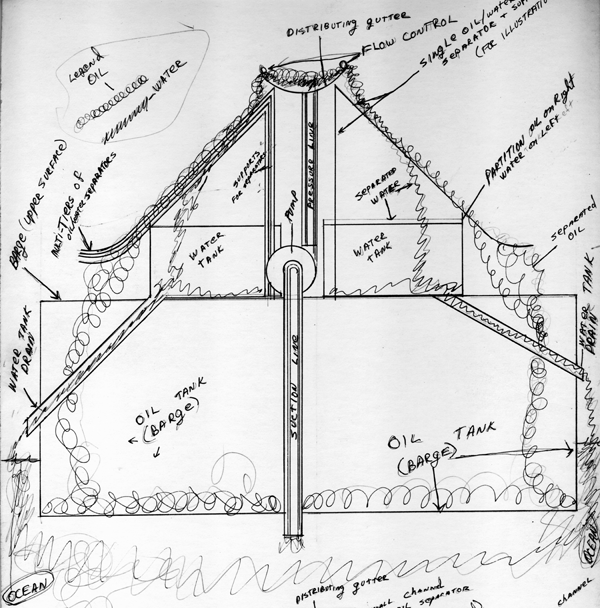 DISTRIBUTING GUTTER
FLOW CONTROL
SINGLE OIL/WATER
SEPARATOR +
(FOR ILLUSTRATION
Legend
OIL
WATER
BARGE (UPPER SURFACE)
MULTI-TIERS OF
OIL/WATER SEPARATORS
SUPPORTS
FOR
PRESSURE LINE
PUMP
SEPARATED
WATER
PARTITION OIL ON RIGHT
WATER ON LEFT
SEPARATED
OIL
WATER
TANK
WATER
TANK
WATER TANK
DRAIN
WATER TANK
DRAIN
SUCTION LINE
OIL TANK
(BARGE)
OIL TANK
(BARGE)
OCEAN
OCEAN
DISTRIBUTING GUTTER
CHANNEL
OIL SEPARATOR
channel